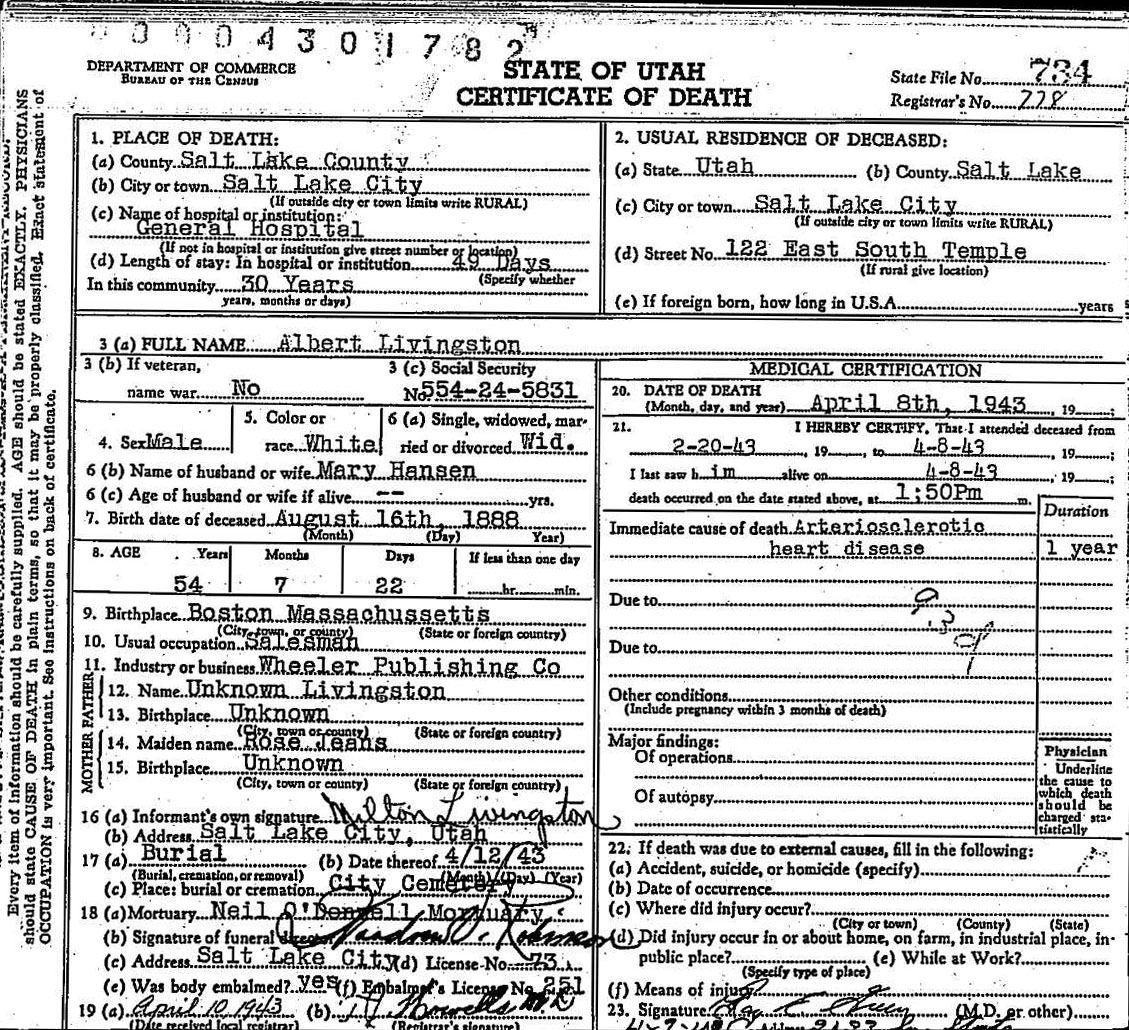 0004301782
DEPARTMENT OF COMMERCE
BUREAU OF THE CENSUS
STATE OF UTAH
CERTIFICATE OF DEATH
State File No. 734
Registrar's No. 778
Every item of information should be carefully supplied. AGE should be stated EXACTLY. PHYSICIANS
should state CAUSE OF DEATH in plain terms, so that it may be properly classified. Exact statement of
OCCUPATION is very important. See instructions on back of certificate.
1. PLACE OF DEATH:
(a) County Salt Lake County
(b) City or town Salt Lake City
(If outside city or town limits write RURAL)
(c) Name of hospital or institution:
General Hospital
(If not in hospital or institution give street number or location)
(d) Length of stay: In hospital or institution 49 Days
(Specify whether
In this community 30 Years
years, months or days)
2. USUAL RESIDENCE OF DECEASED:
(a) State Utah (b) County Salt Lake
(c) City or town Salt Lake City
(If outside city or town limits write RURAL)
(d) Street No. 122 East South Temple
(If rural give location)
(e) If foreign born, how long in U.S.A. years
3 (a) FULL NAME Albert Livingston
3 (b) If veteran,
name war No
3 (c) Social Security
No 554-24-5831
4. Sex Male
5. Color or
race White
6 (a) Single, widowed, mar-
ried or divorced Wid.
6 (b) Name of husband or wife Mary Hansen
6 (c) Age of husband or wife if alive -- yrs.
7. Birth date of deceased August 16th, 1888
(Month) (Day) Year)
8. AGE Years Months Days If less than one day
54 7 22 hr. min.
9. Birthplace Boston Massachussetts
(City, town, or county) (State or foreign country)
10. Usual occupation Salesman
11. Industry or business Wheeler Publishing Co
FATHER
12. Name Unknown Livingston
13. Birthplace Unknown
(City, town or county) (State or foreign country)
MOTHER
14. Maiden name Rose Jeans
15. Birthplace Unknown
(City, town or county) (State or foreign country)
16 (a) Informant's own signature Milton Livingston
(b) Address Salt Lake City, Utah
17 (a) Burial (b) Date thereof 4/12/43
(Burial, cremation, or removal) (Month) (Day) (Year)
(c) Place: burial or cremation City Cemetery
18 (a) Mortuary Neil O'Donnell Mortuary
(b) Signature of funeral director
(c) Address Salt Lake City (d) License No. 73
(e) Was body embalmed? yes (f) Embalmer's License No. 251
19 (a) April 10 1943 (b) Howells M.D
(Date received local registrar) (Registrar's signature)
MEDICAL CERTIFICATION
20. DATE OF DEATH
(Month, day, and year) April 8th, 1943, 19 ;
21. I HEREBY CERTIFY, That I attended deceased from
2-20-43, 19 , to 4-8-43, 19 ;
I last saw him alive on 4-8-43, 19 ;
death occurred on the date stated above, at 1:50Pm m.
Duration
Immediate cause of death Arteriosclerotic
heart disease 1 year
Due to
Due to
Other conditions
(Include pregnancy within 3 months of death)
Major findings:
Of operations
Of autopsy
Physician
Underline
the cause to
which death
should be
charged sta-
tistically
22. If death was due to external causes, fill in the following:
(a) Accident, suicide, or homicide (specify)
(b) Date of occurrence
(c) Where did injury occur?
(City or town) (County) (State)
(d) Did injury occur in or about home, on farm, in industrial place, in-
public place? (e) While at Work?
(Specify type of place)
(f) Means of injury
23. Signature (M.D. or other)
Address